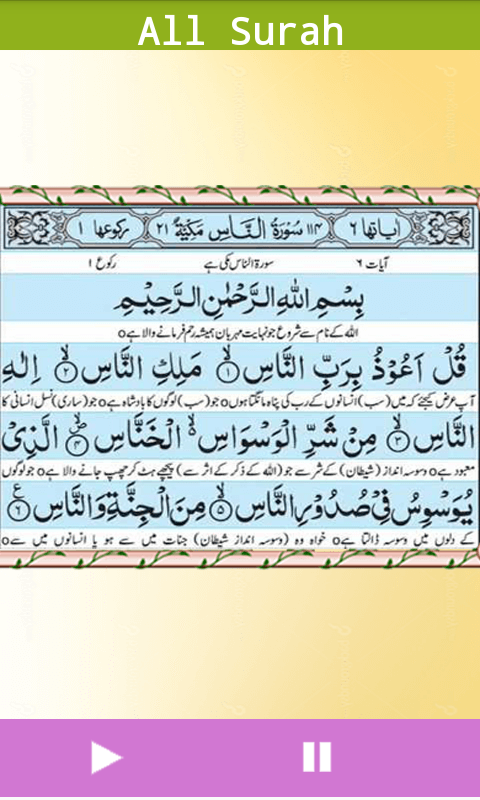 All Surah
اٰیاتھا ٦ ١١٤ سُوْرَةُ النَّاسِ مَكِّيَّةٌ ٢١ رکوعھا ١
آیات ٦ سورۃ الناس مکی ہے رکوع ١
بِسْمِ اللهِ الرَّحْمٰنِ الرَّحِيْمِ
اللہ کے نام سے شروع جو نہایت مہربان ہمیشہ رحم فرمانے والا ہے o
قُلْ اَعُوْذُ بِرَبِّ النَّاسِ ۙ﴿١﴾ مَلِكِ النَّاسِ ۙ﴿٢﴾ اِلٰهِ
آپ عرض کیجئے کہ میں (سب) انسانوں کے رب کی پناہ مانگتا ہوں o جو (سب) لوگوں کا بادشاہ ہے o جو (ساری) نسل انسانی کا
النَّاسِ ۙ﴿٣﴾ مِنْ شَرِّ الْوَسْوَاسِ ۙ۬ الْخَنَّاسِ ۪ۙ﴿٤﴾ الَّذِيْ
معبود ہے o وسوسہ انداز (شیطان) کے شر سے جو (اللہ کے ذکر کے اثر سے) پیچھے ہٹ کر چھپ جانے والا ہے o جو لوگوں
يُوَسْوِسُ فِيْ صُدُوْرِ النَّاسِ ۙ﴿٥﴾ مِنَ الْجِنَّةِ وَ النَّاسِ ﴿٦﴾ ع
کے دلوں میں وسوسہ ڈالتا ہے o خواہ وہ (وسوسہ انداز شیطان) جنات میں سے ہو یا انسانوں میں سے o